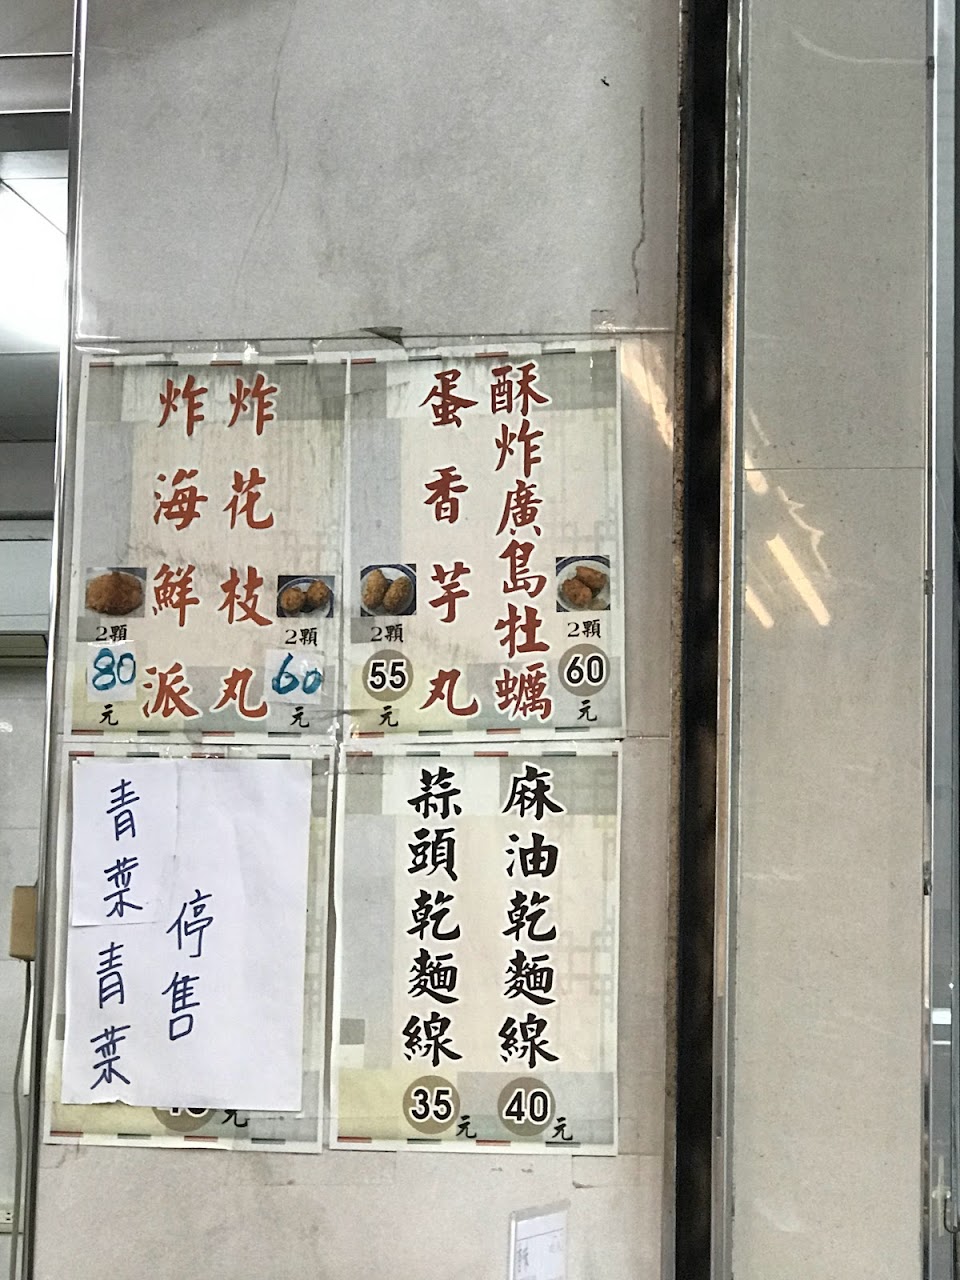 酥炸廣島牡蠣
2顆
60
元
蛋香芋丸
2顆
55
元
炸花枝丸
2顆
60
元
炸海鮮派
2顆
80
元
麻油乾麵線
40
元
蒜頭乾麵線
35
元
停售
青菜青菜
元